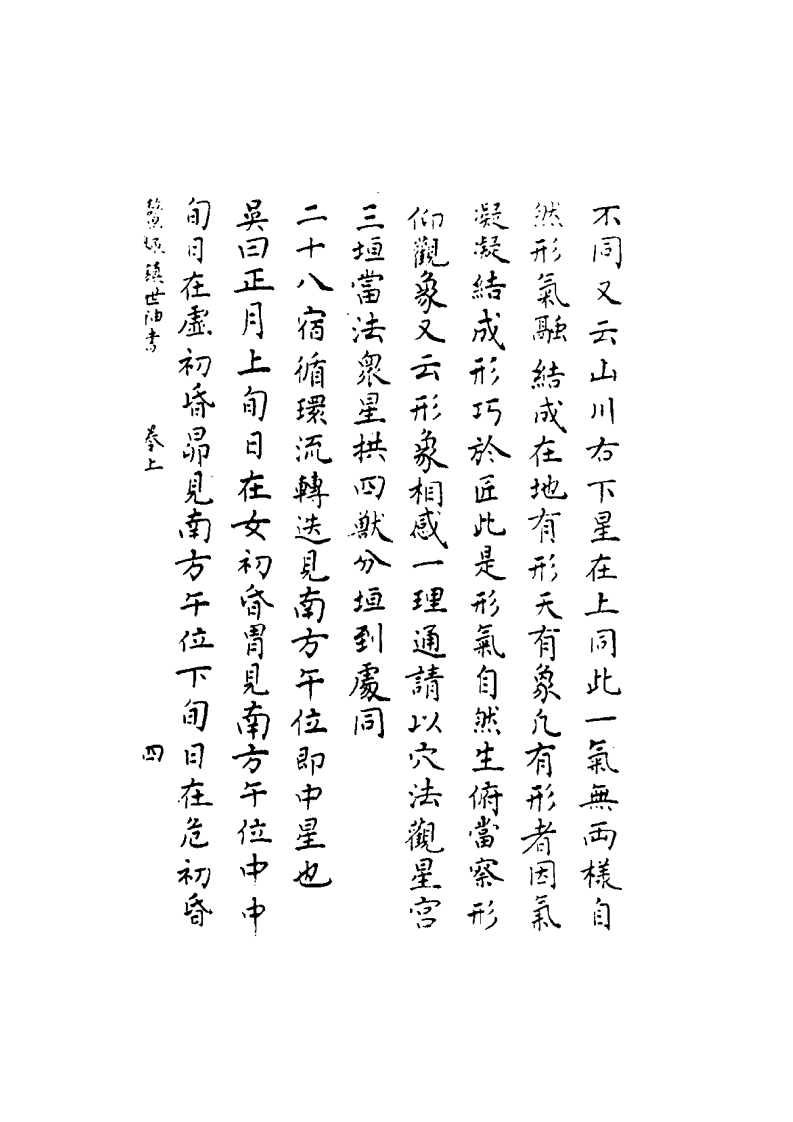 不同又云山川右下星在上同此一氣無両樣自
然形氣融結成在地有形天有象凡有形者因氣
凝凝結成形巧於匠此是形氣自然生俯當察形
仰觀象又云形象相感一理通請以穴法觀星宮
三垣當法衆星拱四獸分垣到處同
二十八宿循環流轉迭見南方午位即中星也
吳曰正月上旬日在女初昏胃見南方午位中中
旬日在虛初昏昴見南方午位下旬日在危初昏
鎮世 書 卷上 四